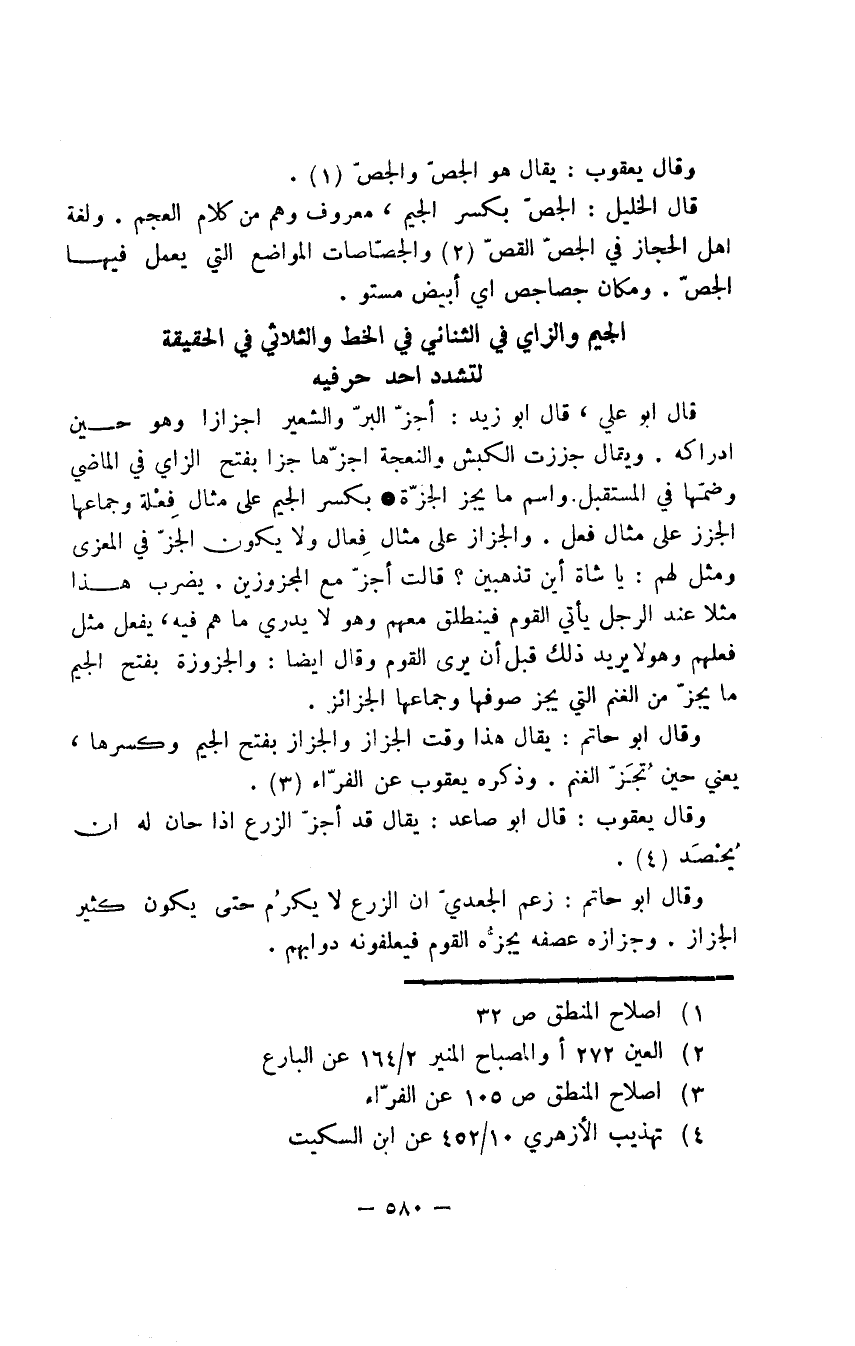 وقال يعقوب : يقال هو الجصّ والجصّ (١) .
قال الخليل : الجصّ بكسر الجيم ، معروف وهم من كلام العجم . ولغة
اهل الحجاز في الجصّ القصّ (٢) والجصّاصات المواضع التي يعمل فيهـــا
الجصّ . ومكان جصاجص اي أبيض مستو .
الجيم والزاي في الثنائي في الخط والثلاثي في الحقيقة
لتشدد احد حرفيه
قال ابو علي ، قال ابو زيد : أجزّ البرّ والشعير اجزازا وهو حـــين
ادراكه . ويقال جززت الكبش والنعجة اجزّها جزا بفتح الزاي في الماضي
وضمّها في المستقبل.واسم ما يجز الجزّة● بكسر الجيم على مثال فِعْلة وجماعها
الجزز على مثال فعل . والجزاز على مثال فِعال ولا يكون الجزّ في المعزى
ومثل لهم : يا شاة أين تذهبين ؟ قالت أجزّ مع المجزوزين . يضرب هـــذا
مثلا عند الرجل يأتي القوم فينطلق معهم وهو لا يدري ما هم فيه، يفعل مثل
فعلهم وهولا يريد ذلك قبل أن يرى القوم وقال ايضا : والجزوزة بفتح الجيم
ما يجزّ من الغنم التي يجز صوفها وجماعها الجزائز .
وقال ابو حاتم : يقال هذا وقت الجزاز والجزاز بفتح الجيم وكسرها ،
يعني حين تُجَزّ الغنم . وذكره يعقوب عن الفرّاء (٣) .
وقال يعقوب : قال ابو صاعد : يقال قد أجزّ الزرع اذا حان له ان
يُحْصَد (٤) .
وقال ابو حاتم : زعم الجعديّ ان الزرع لا يكرُم حتى يكون كثير
الجزاز . وجزازه عصفه يجزّه القوم فيعلفونه دوابهم .
١) اصلاح المنطق ص ٣٢
٢) العين ٢٧٢ أ والمصباح المنير ١٦٤/٢ عن البارع
٣) اصلاح المنطق ص ١٠٥ عن الفرّاء
٤) تهذيب الأزهري ٤٥٢/١٠ عن ابن السكيت
— ٥٨٠ —